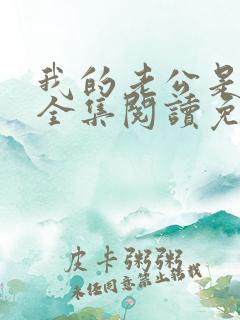 我的老公是
全集阅读免
皮卡粥粥
未经同意禁止转载